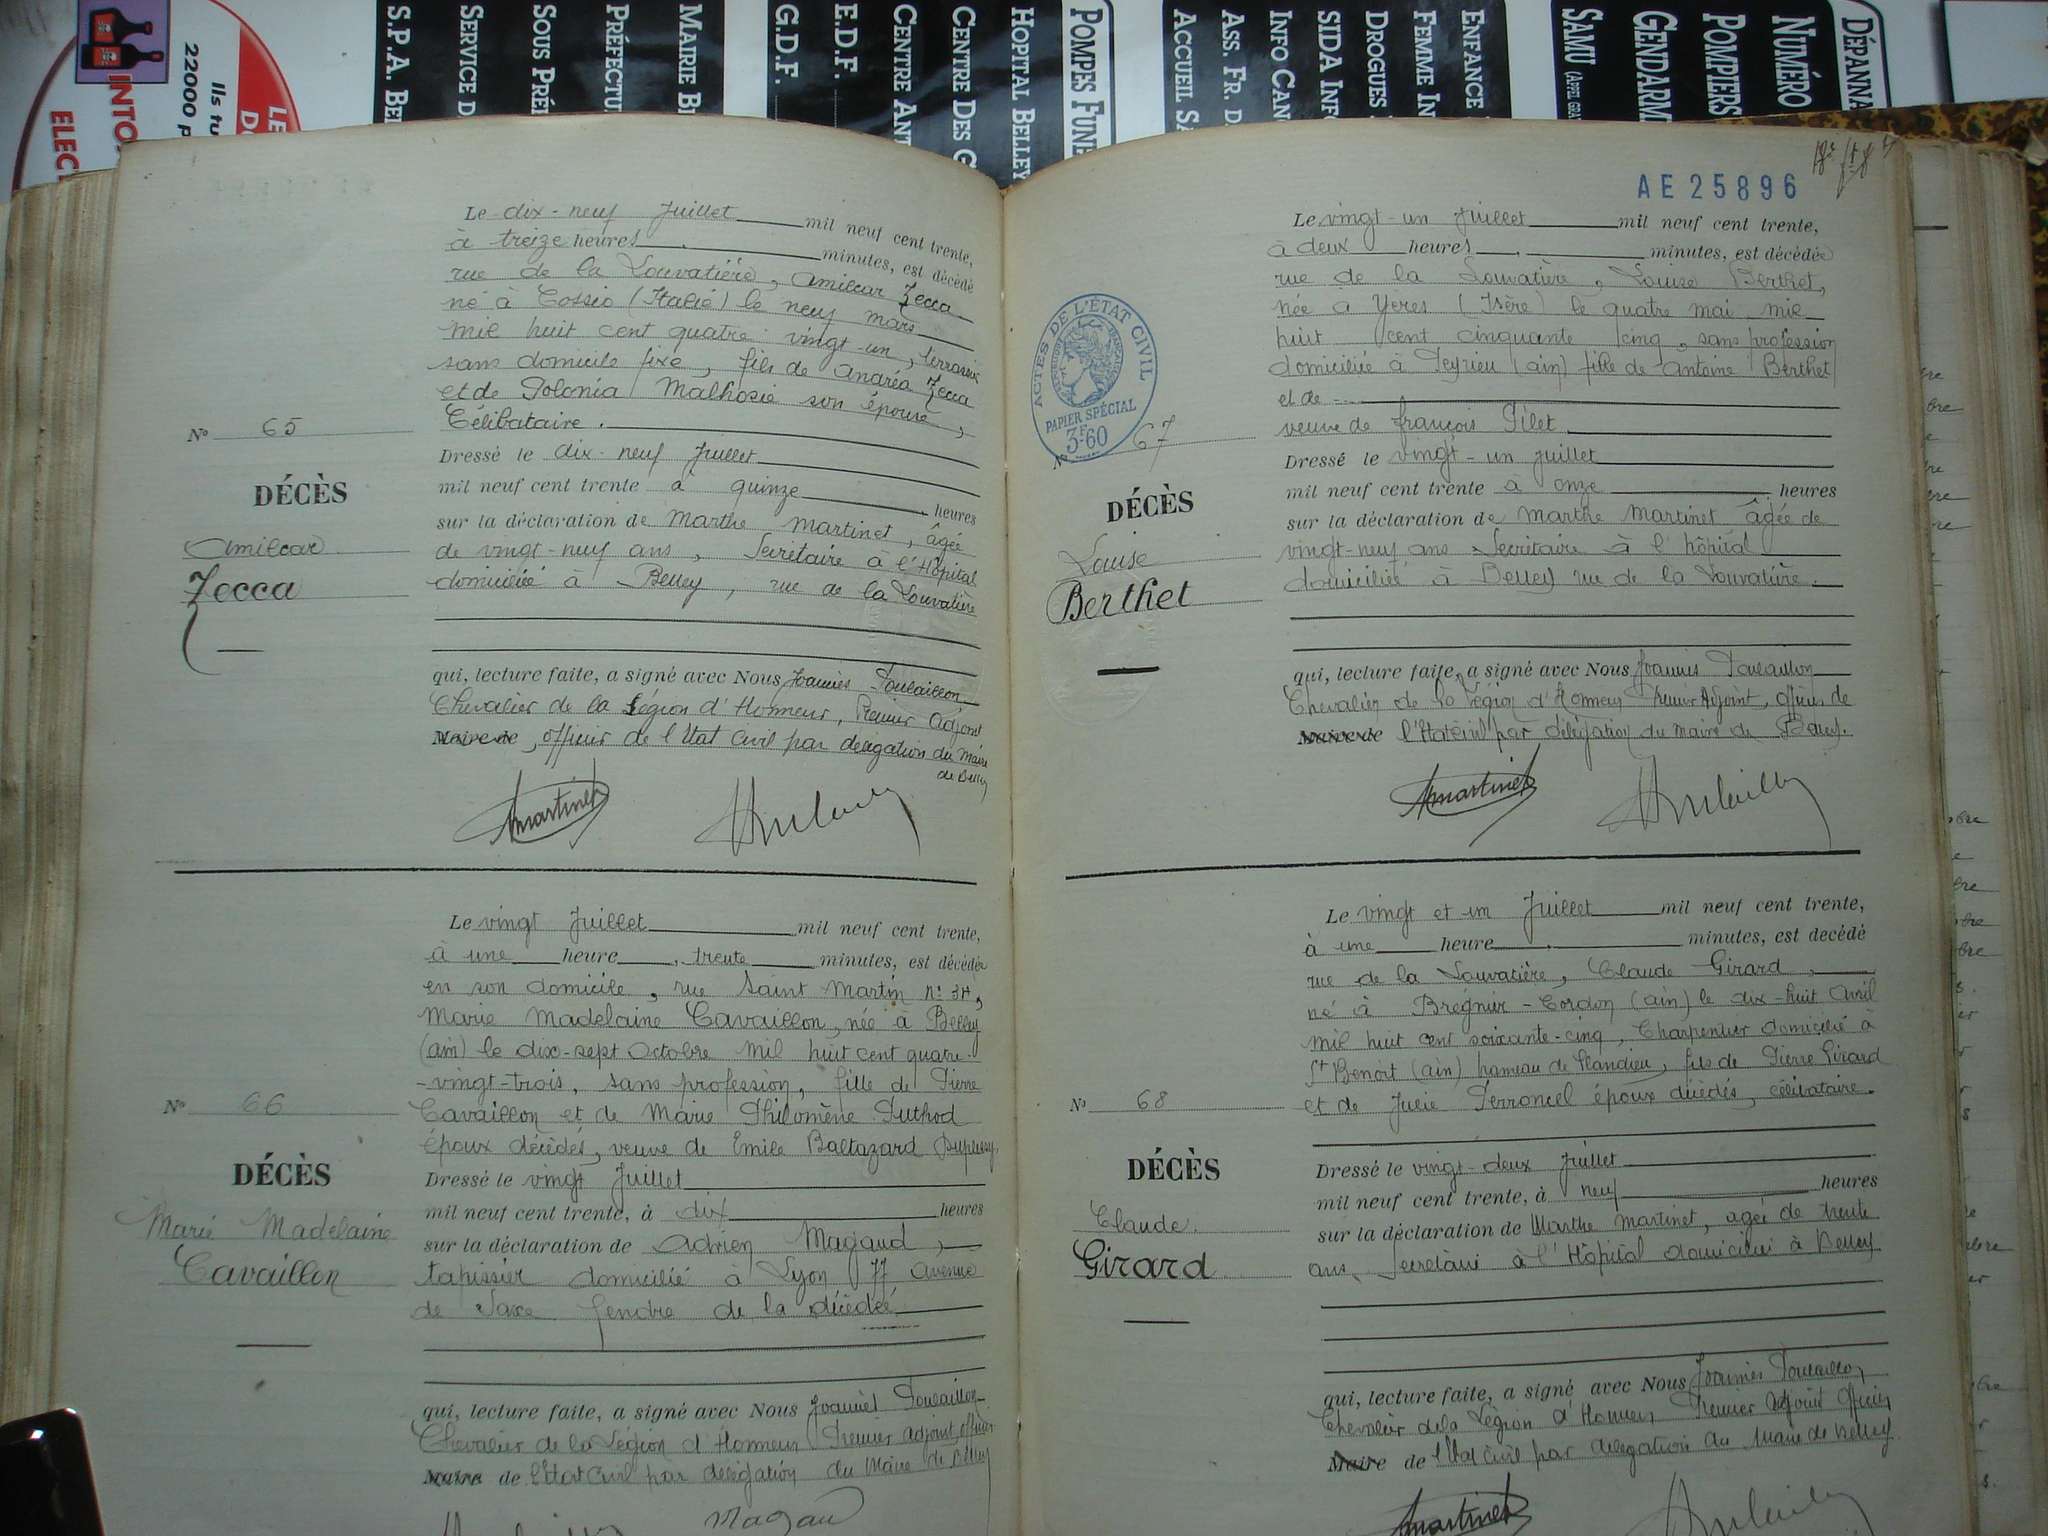 LE
D
Ils tu
22000 p
INTO
ELEC
S.P.A. BEL
SERVICE D
SOUS PRÉ
PRÉFECTU
MAIRIE B
G.D.F.
E.D.F.
CENTRE ANT
CENTRE DES G
HOPITAL BELLEY
POMPES FUNÈ
ACCUEIL SA
ASS. FR. D
INFO CAN
SIDA INF
DROGUES
FEMME IN
ENFANCE
SAMU (APPEL GRA
GENDARM
POMPIERS
NUMÉRO
DÉPANNA
Le dix-neuf Juillet mil neuf cent trente,
à treize heures minutes, est décédé
rue de la Louvatière, Amilcar Zecca
né à Cossio (Italie) le neuf mars
mil huit cent quatre vingt-un, terrassier
sans domicile fixe, fils de Andréa Zecca
et de Polonia Malhosie son épouse,
Célibataire.
Dressé le dix-neuf Juillet
mil neuf cent trente à quinze heures
sur la déclaration de Marthe Martinet, âgée
de vingt-neuf ans, Secrétaire à l'Hôpital
domiciliée à Belley, rue de la Louvatière
qui, lecture faite, a signé avec Nous Joannès Poulaillon
Chevalier de la Légion d'Honneur, Premier Adjoint
Maire de, officier de l'Etat Civil par délégation du Maire
de Belley
Martinet
N° 65
DÉCÈS
Amilcar
Zecca
Le vingt Juillet mil neuf cent trente,
à une heure, trente minutes, est décédée
en son domicile, rue Saint Martin n° 34,
Marie Madelaine Cavaillon, née à Belley
(ain) le dix-sept Octobre mil huit cent quatre-
-vingt-trois, sans profession, fille de Pierre
Cavaillon et de Marie Philomène Puthod
époux décédés, veuve de Emile Baltazard Duplessy
Dressé le vingt Juillet
mil neuf cent trente, à dix heures
sur la déclaration de Adrien Magaud,
tapissier domicilié à Lyon 77 avenue
de Saxe gendre de la décédée
qui, lecture faite, a signé avec Nous Joannès Poulaillon
Chevalier de la Légion d'Honneur Premier adjoint, officier
Maire de l'Etat Civil par délégation du Maire de Belley
Magau
N° 66
DÉCÈS
Marie Madelaine
Cavaillon
AE25896
Le vingt-un Juillet mil neuf cent trente,
à deux heures minutes, est décédée
rue de la Louvatière, Louise Berthet,
née a Yères (Isère) le quatre mai mil
huit cent cinquante cinq, sans profession
domiciliée à Peyrieu (ain) fille de Antoine Berthet
et de
veuve de françois Pilet
Dressé le vingt-un juillet
mil neuf cent trente à onze heures
sur la déclaration de Marthe Martinet âgée de
vingt-neuf ans Secrétaire à l'hôpital
domiciliée à Belley rue de la Louvatière.
qui, lecture faite, a signé avec Nous Joannès Poulaillon
Chevalier de la Légion d'Honneur Premier Adjoint, officier de
Maire de l'Etat civil par délégation du maire de Belley.
Martinet
ACTES DE L'ÉTAT CIVIL
PAPIER SPÉCIAL
3F60
N° 67
DÉCÈS
Louise
Berthet
Le vingt et un Juillet mil neuf cent trente,
à une heure minutes, est decédé
rue de la Louvatière, Claude Girard,
né à Brégnier-Cordon (ain) le dix-huit Avril
mil huit cent soixante-cinq, Charpentier domicilié à
St Benoit (ain) hameau de Glandieu, fils de Pierre Girard
et de Julie Perroncel époux décédés, célibataire.
Dressé le vingt-deux Juillet
mil neuf cent trente, à neuf heures
sur la déclaration de Marthe Martinet, agée de trente
ans, Secrétaire à l'Hôpital domiciliée à Belley
qui, lecture faite, a signé avec Nous Joannès Poulaillon,
Chevalier de la Légion d'Honneur Premier Adjoint Officier
Maire de l'Etat Civil par délégation du Maire de Belley
Martinet
N° 68
DÉCÈS
Claude
Girard